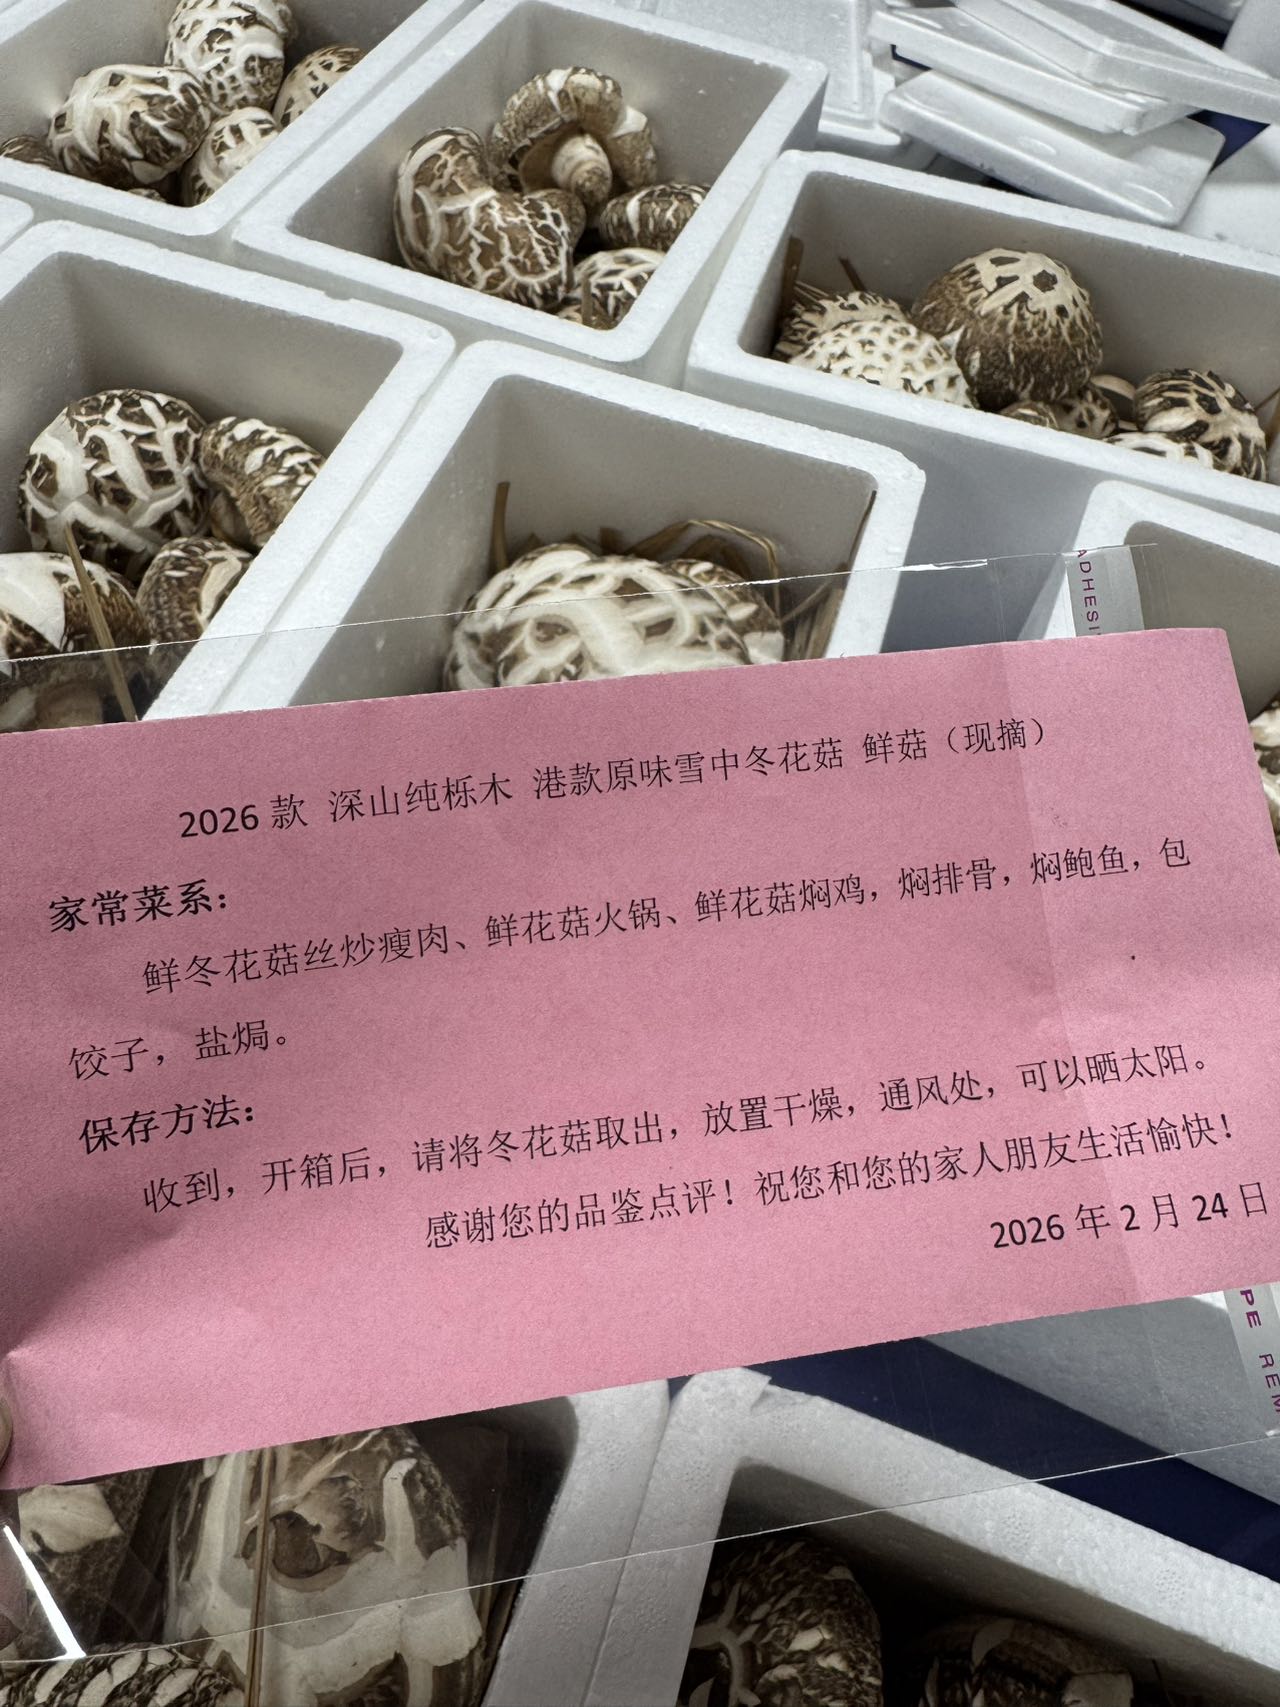 ADHESI
2026 款 深山纯栎木 港款原味雪中冬花菇 鲜菇（现摘）
家常菜系：
鲜冬花菇丝炒瘦肉、鲜花菇火锅、鲜花菇焖鸡，焖排骨，焖鲍鱼，包
饺子，盐焗。
保存方法：
收到，开箱后，请将冬花菇取出，放置干燥，通风处，可以晒太阳。
感谢您的品鉴点评！祝您和您的家人朋友生活愉快！
2026 年 2 月 24 日
PE REM